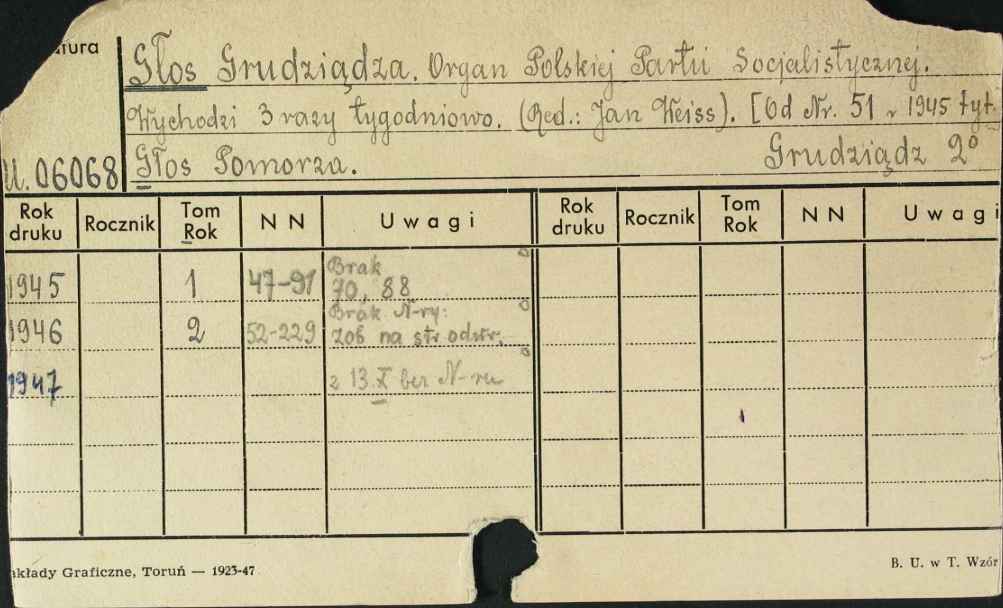 tura
Głos Grudziądza. Organ Polskiej Partii Socjalistycznej.
Wychodzi 3 razy tygodniowo. (Red.: Jan Weiss). [Od Nr. 51 r 1945 tyt.
U. 06068 Głos Pomorza. Grudziądz 2°
Rok druku Rocznik Tom Rok N N Uwagi Rok druku Rocznik Tom Rok N N Uwagi
1945 1 47-91 Brak 70, 88
1946 2 52-229 Brak N-ry: zob na str odwr.
1947 z 13.X bez N-ru
kłady Graficzne, Toruń — 1923-47 B. U. w T. Wzór